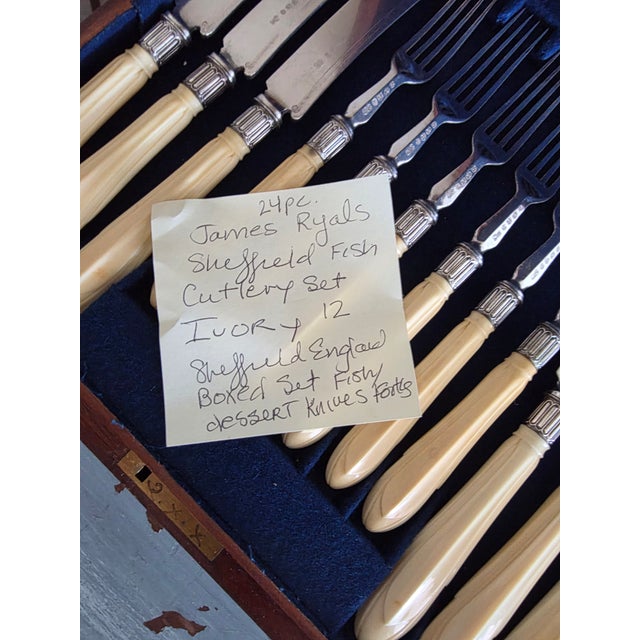 24pc.
James Ryals
Sheffield Fish
Cutlery Set
Ivory 12
Sheffield England
Boxed Set Fish/
dessert Knives Forks